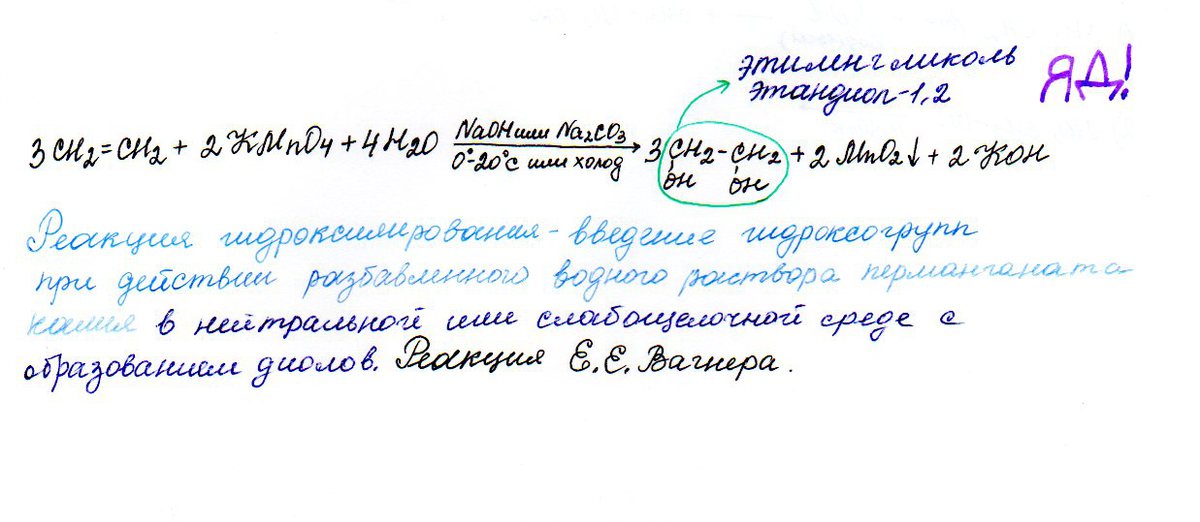 этиленгликоль ЯД!
этандиол-1,2
3CH2=CH2 + 2KMnO4 + 4H2O NaOH или Na2CO3 3CH2-CH2 + 2MnO2↓ + 2KOH
0°-20°C или холод
OH OH
Реакция гидроксилирования - введение гидроксогрупп
при действии разбавленного водного раствора перманганата
калия в нейтральной или слабощелочной среде с
образованием диолов. Реакция Е.Е. Вагнера.